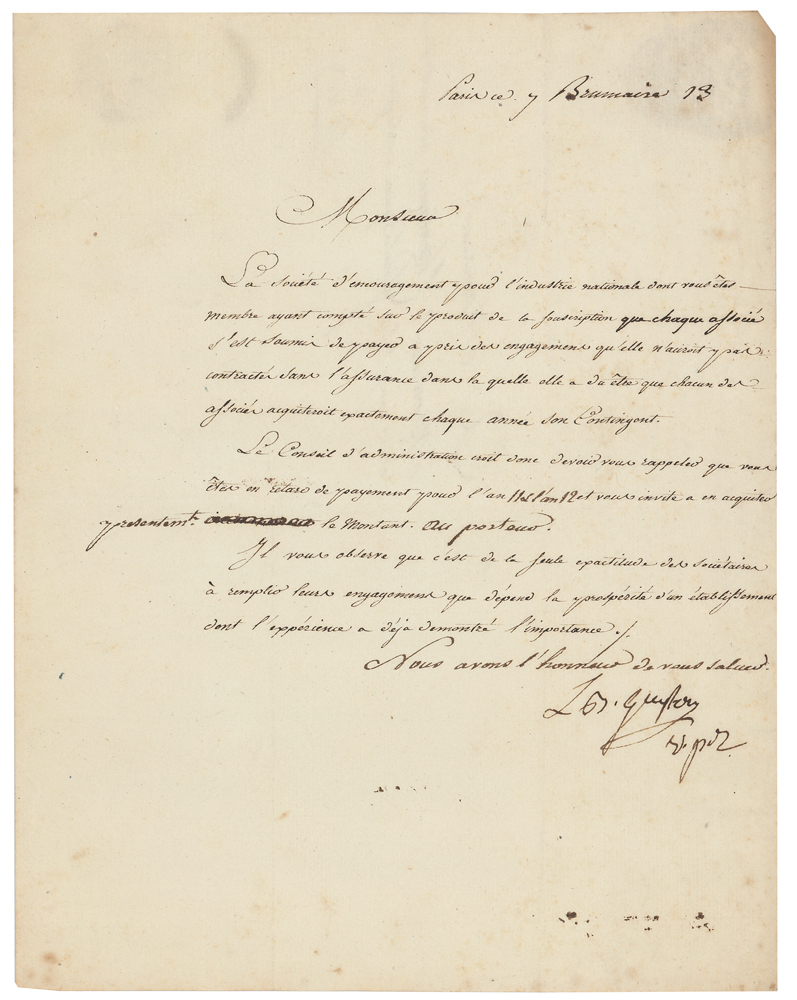 Paris ce 7 Brumaire 13
Monsieur
La Société d'encouragement pour l'industrie nationale dont vous êtes
membre ayant compté sur le produit de la Souscription que chaque associé
s'est soumis de payer a pris des engagemens qu'elle n'auroit pas
contractés sans l'assurance dans la quelle elle a du être que chacun des
associés acquiteroit exactement chaque année son Contingent.
Le Conseil d'administration croit donc devoir vous rappeler que vous
êtes en retard de payement pour l'an 11 et l'an 12 et vous invite a en acquiter
présentemt. le Montant. au porteur.
Il vous observe que c'est de la seule exactitude des sociétaires
à remplir leurs engagemens que dépend la prospérité d'un établissement
dont l'expérience a déja démontré l'importance ./.
Nous avons l'honneur de vous saluer.
L. B. Guyton